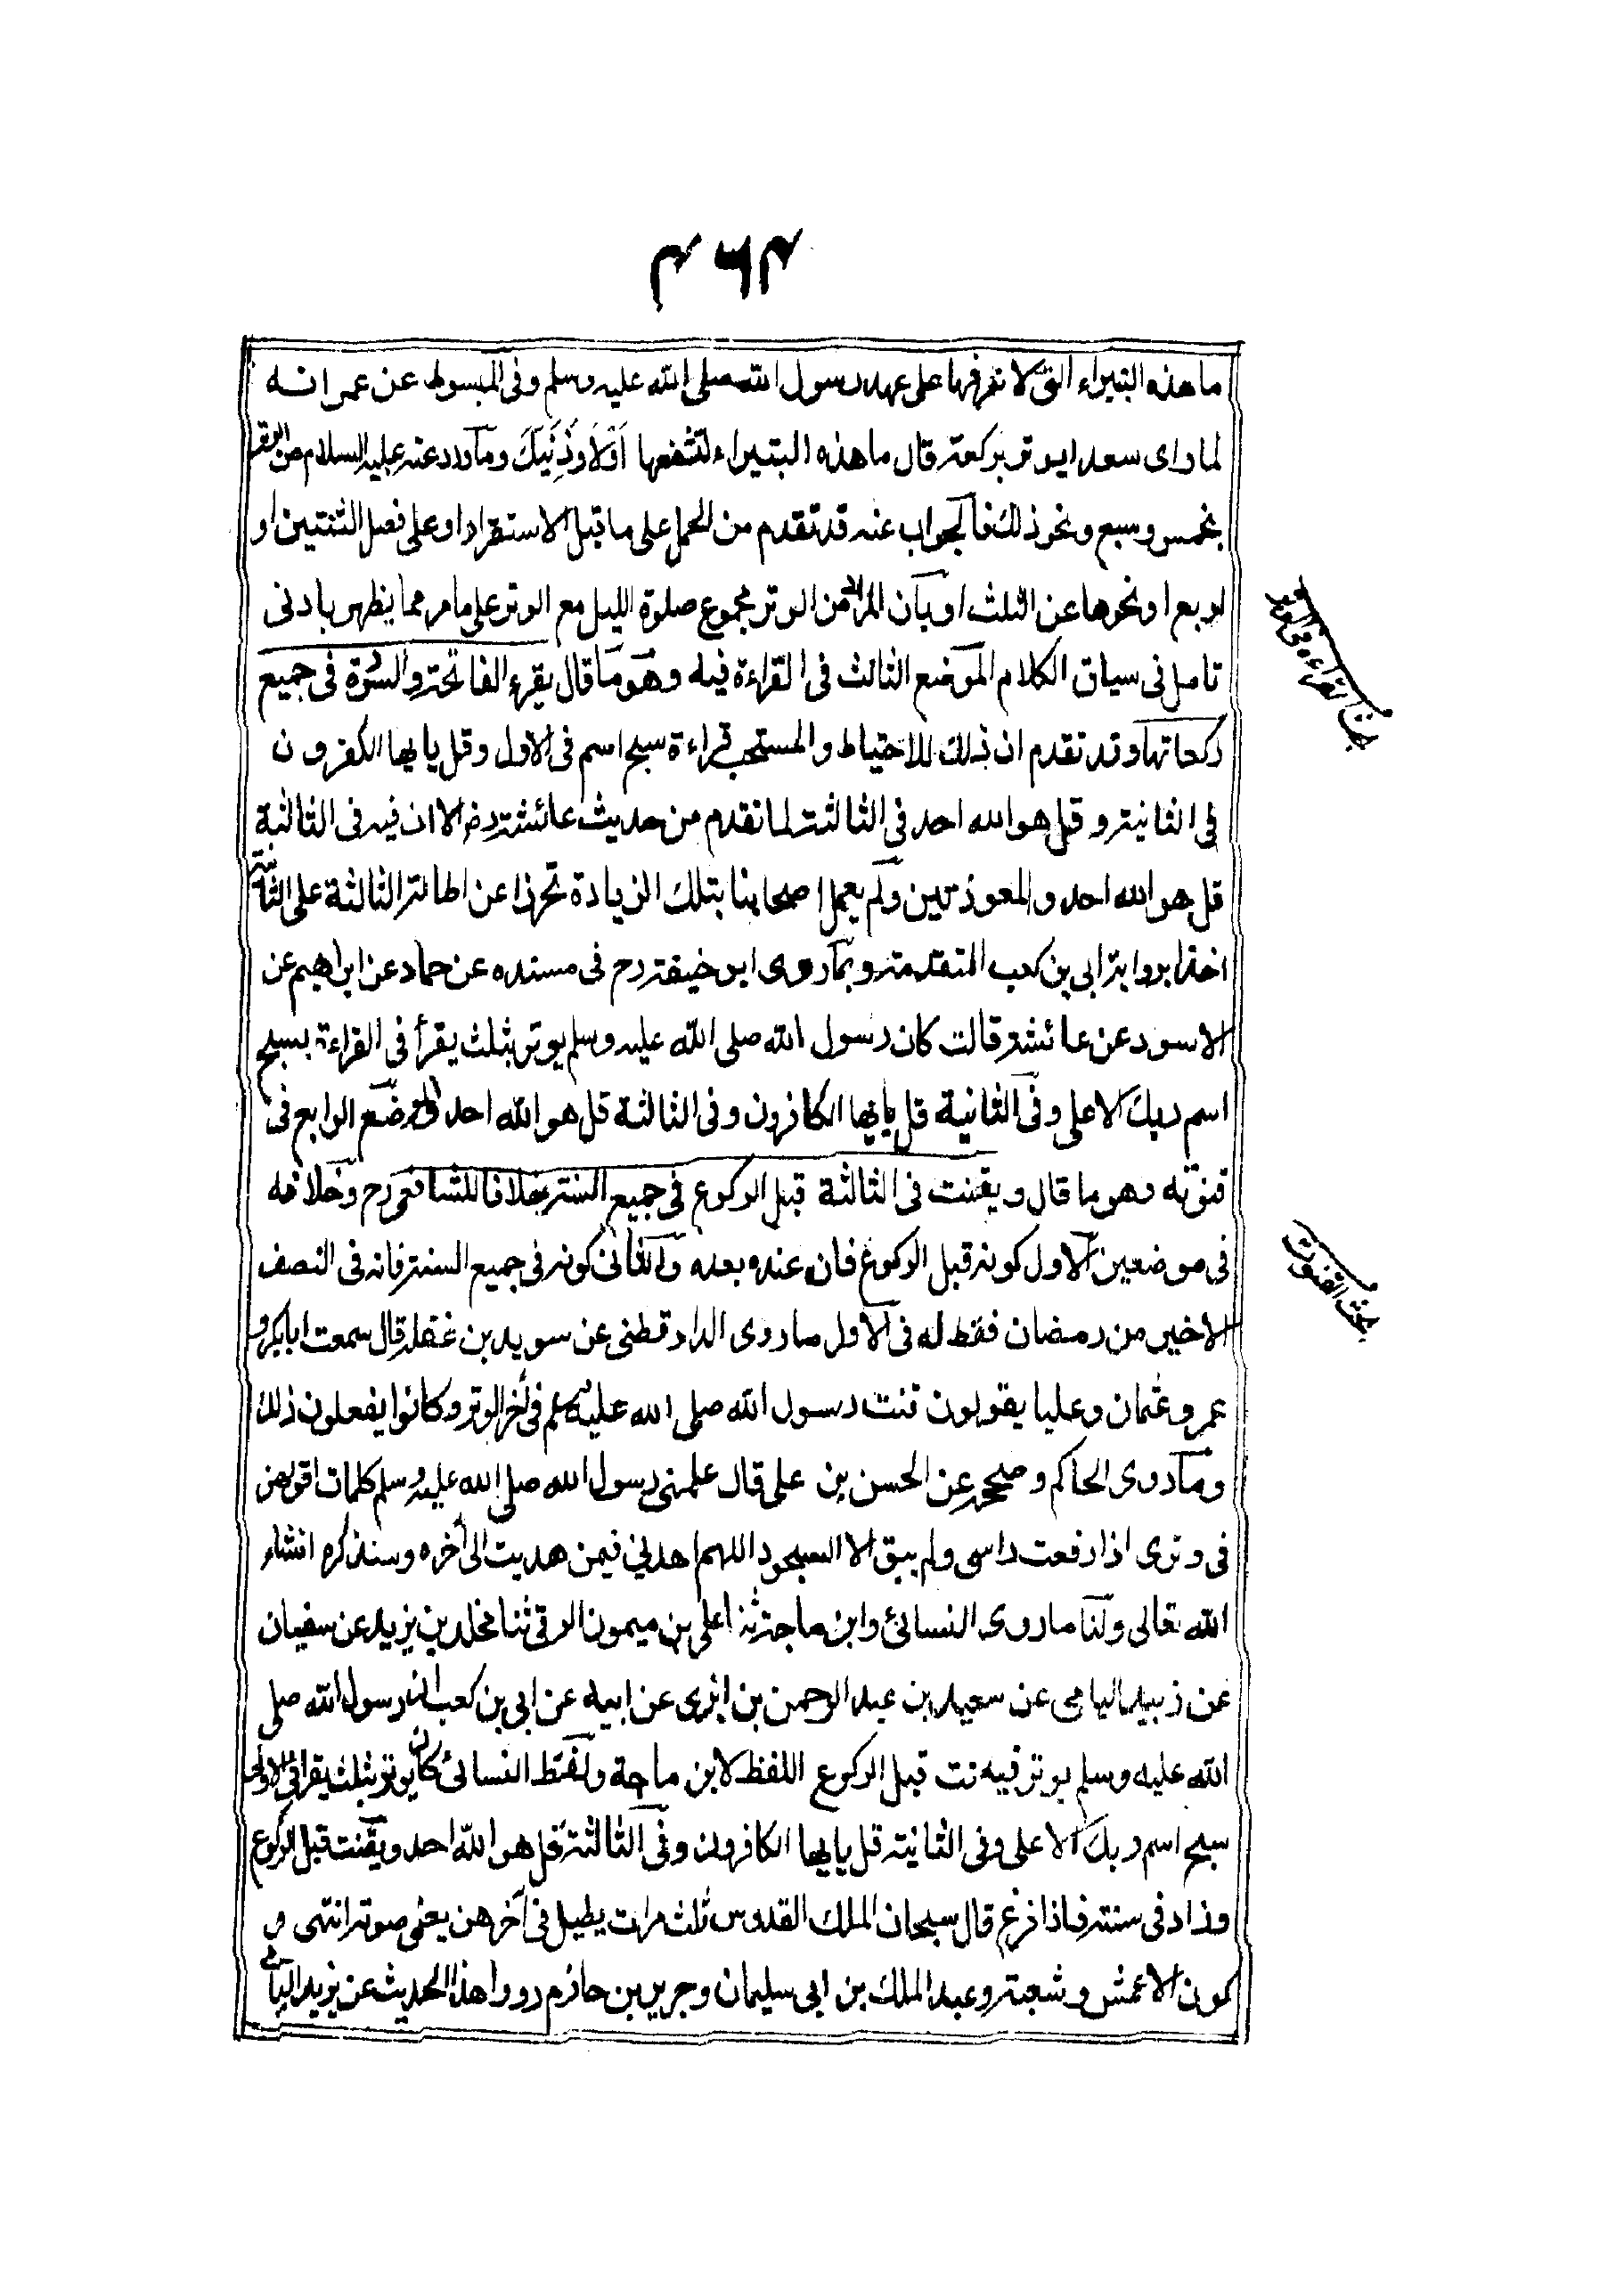 ما هذه البتيراء التى لا نعرفها على عهد رسول الله صلى الله عليه وسلم وفى المبسوط عن عمر انه
لما راى سعدا يوتر بركعة قال ما هذه البتيراء لتشفعها اَوْ لَأُوَذِّنَنَّكَ وما ورد عنه عليه السلام من الوتر
بخمس وسبع ونحو ذلك فالجواب عنه قد تقدم من الحمل على ما قبل الاستقرار او على فصل الثنتين او
اربعا ونحوها عن الثلث او بان المراد من الوتر مجموع صلوة الليل مع الوتر على ما مر مما يظهر بادنى
تامل فى سياق الكلام الموضع الثالث فى القراءة فيه وهو ما قال يقرء الفاتحة والسورة فى جميع
ركعاتها وقد تقدم ان ذلك للاحتياط والمستحب قراءة سبح اسم فى الاول وقل يايها الكفرون
فى الثانية وقل هو الله احد فى الثالثة لما تقدم من حديث عائشة رض الا ان فيه فى الثالثة
قل هو الله احد والمعوذتين ولم يعمل اصحابنا بتلك الزيادة تحرزا عن اطالة الثالثة على الثانية
اخذا برواية ابى بن كعب المتقدمة وبما روى ابو حنيفة رح فى مسنده عن حماد عن ابراهيم عن
الاسود عن عائشة قالت كان رسول الله صلى الله عليه وسلم يوتر بثلث يقرأ فى القراءة بسبح
اسم ربك الاعلى وفى الثانية قل يايها الكافرون وفى الثالثة قل هو الله احد الموضع الرابع فى
قنوته وهو ما قال ويقنت فى الثالثة قبل الركوع فى جميع السنة خلافا للشافعى رح وخلافه
فى موضعين الاول كونه قبل الركوع فان عنده بعده والثانى كونه فى جميع السنة فانه فى النصف
الاخير من رمضان فقط له فى الاول ما روى الدارقطنى عن سويد بن غفلة قال سمعت ابا بكر و
عمر وعثمان وعليا يقولون قنت رسول الله صلى الله عليه وسلم فى أخر الوتر وكانوا يفعلون ذلك
وما روى الحاكم وصححه عن الحسن بن على قال علمنى رسول الله صلى الله عليه وسلم كلمات اقولهن
فى وترى اذا رفعت راسى ولم يبق الا السجود اللهم اهدنى فيمن هديت الى أخره وسنذكره انشاء
الله تعالى ولنا ما روى النسائى وابن ماجة ثنا على بن ميمون الرقى ثنا مخلد بن يزيد عن سفيان
عن زبيد اليامى عن سعيد بن عبد الرحمن بن ابزى عن ابيه عن ابى بن كعب ان رسول الله صلى
الله عليه وسلم يوتر فيه نت قبل الركوع اللفظ لابن ماجة ولفظ النسائى كان يوتر بثلث يقرأ فى الاولى
سبح اسم ربك الاعلى وفى الثانية قل يايها الكافرون وفى الثالثة قل هو الله احد ويقنت قبل الركوع
وزاد فى سننه فاذا فرغ قال سبحان الملك القدوس ثلث مرات يطيل فى آخرهن يعنى صوته انتهى و
كون الاعمش وشعبة وعبد الملك بن ابى سليمان وجرير بن حازم رووا هذا الحديث عن زبيد اليامى
بحث القراءة فى الوتر
بحث القنوت